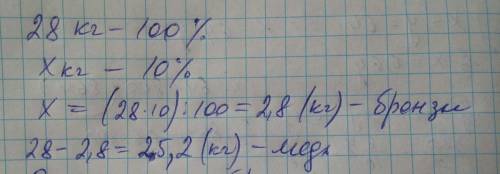 28 кг – 100 %
X кг – 10 %
X = (28·10) : 100 = 2,8 (кг) – бронзы
28 – 2,8 = 25,2 (кг) – меди